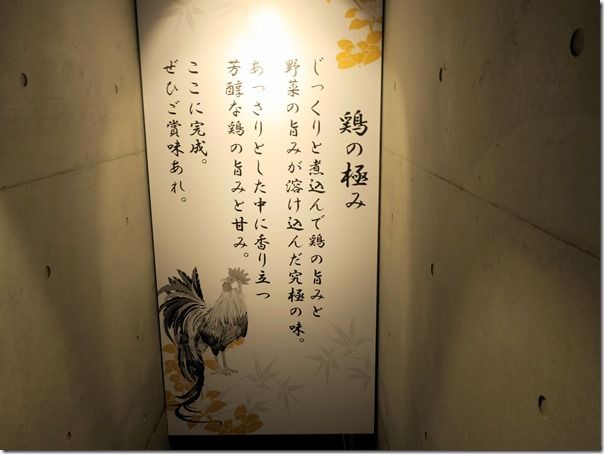 鶏の極み
じっくりと煮込んで鶏の旨みと
野菜の旨みが溶け込んだ究極の味。
あっさりとした中に香り立つ
芳醇な鶏の旨みと甘み。
ここに完成。
ぜひご賞味あれ。